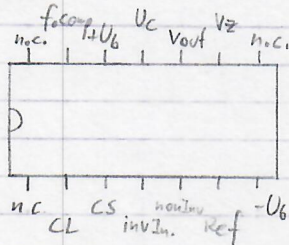 n.c. f.comp +Ub Uc Vout Vz n.c.
n.c. CL CS inv In. noninv Ref -Ub